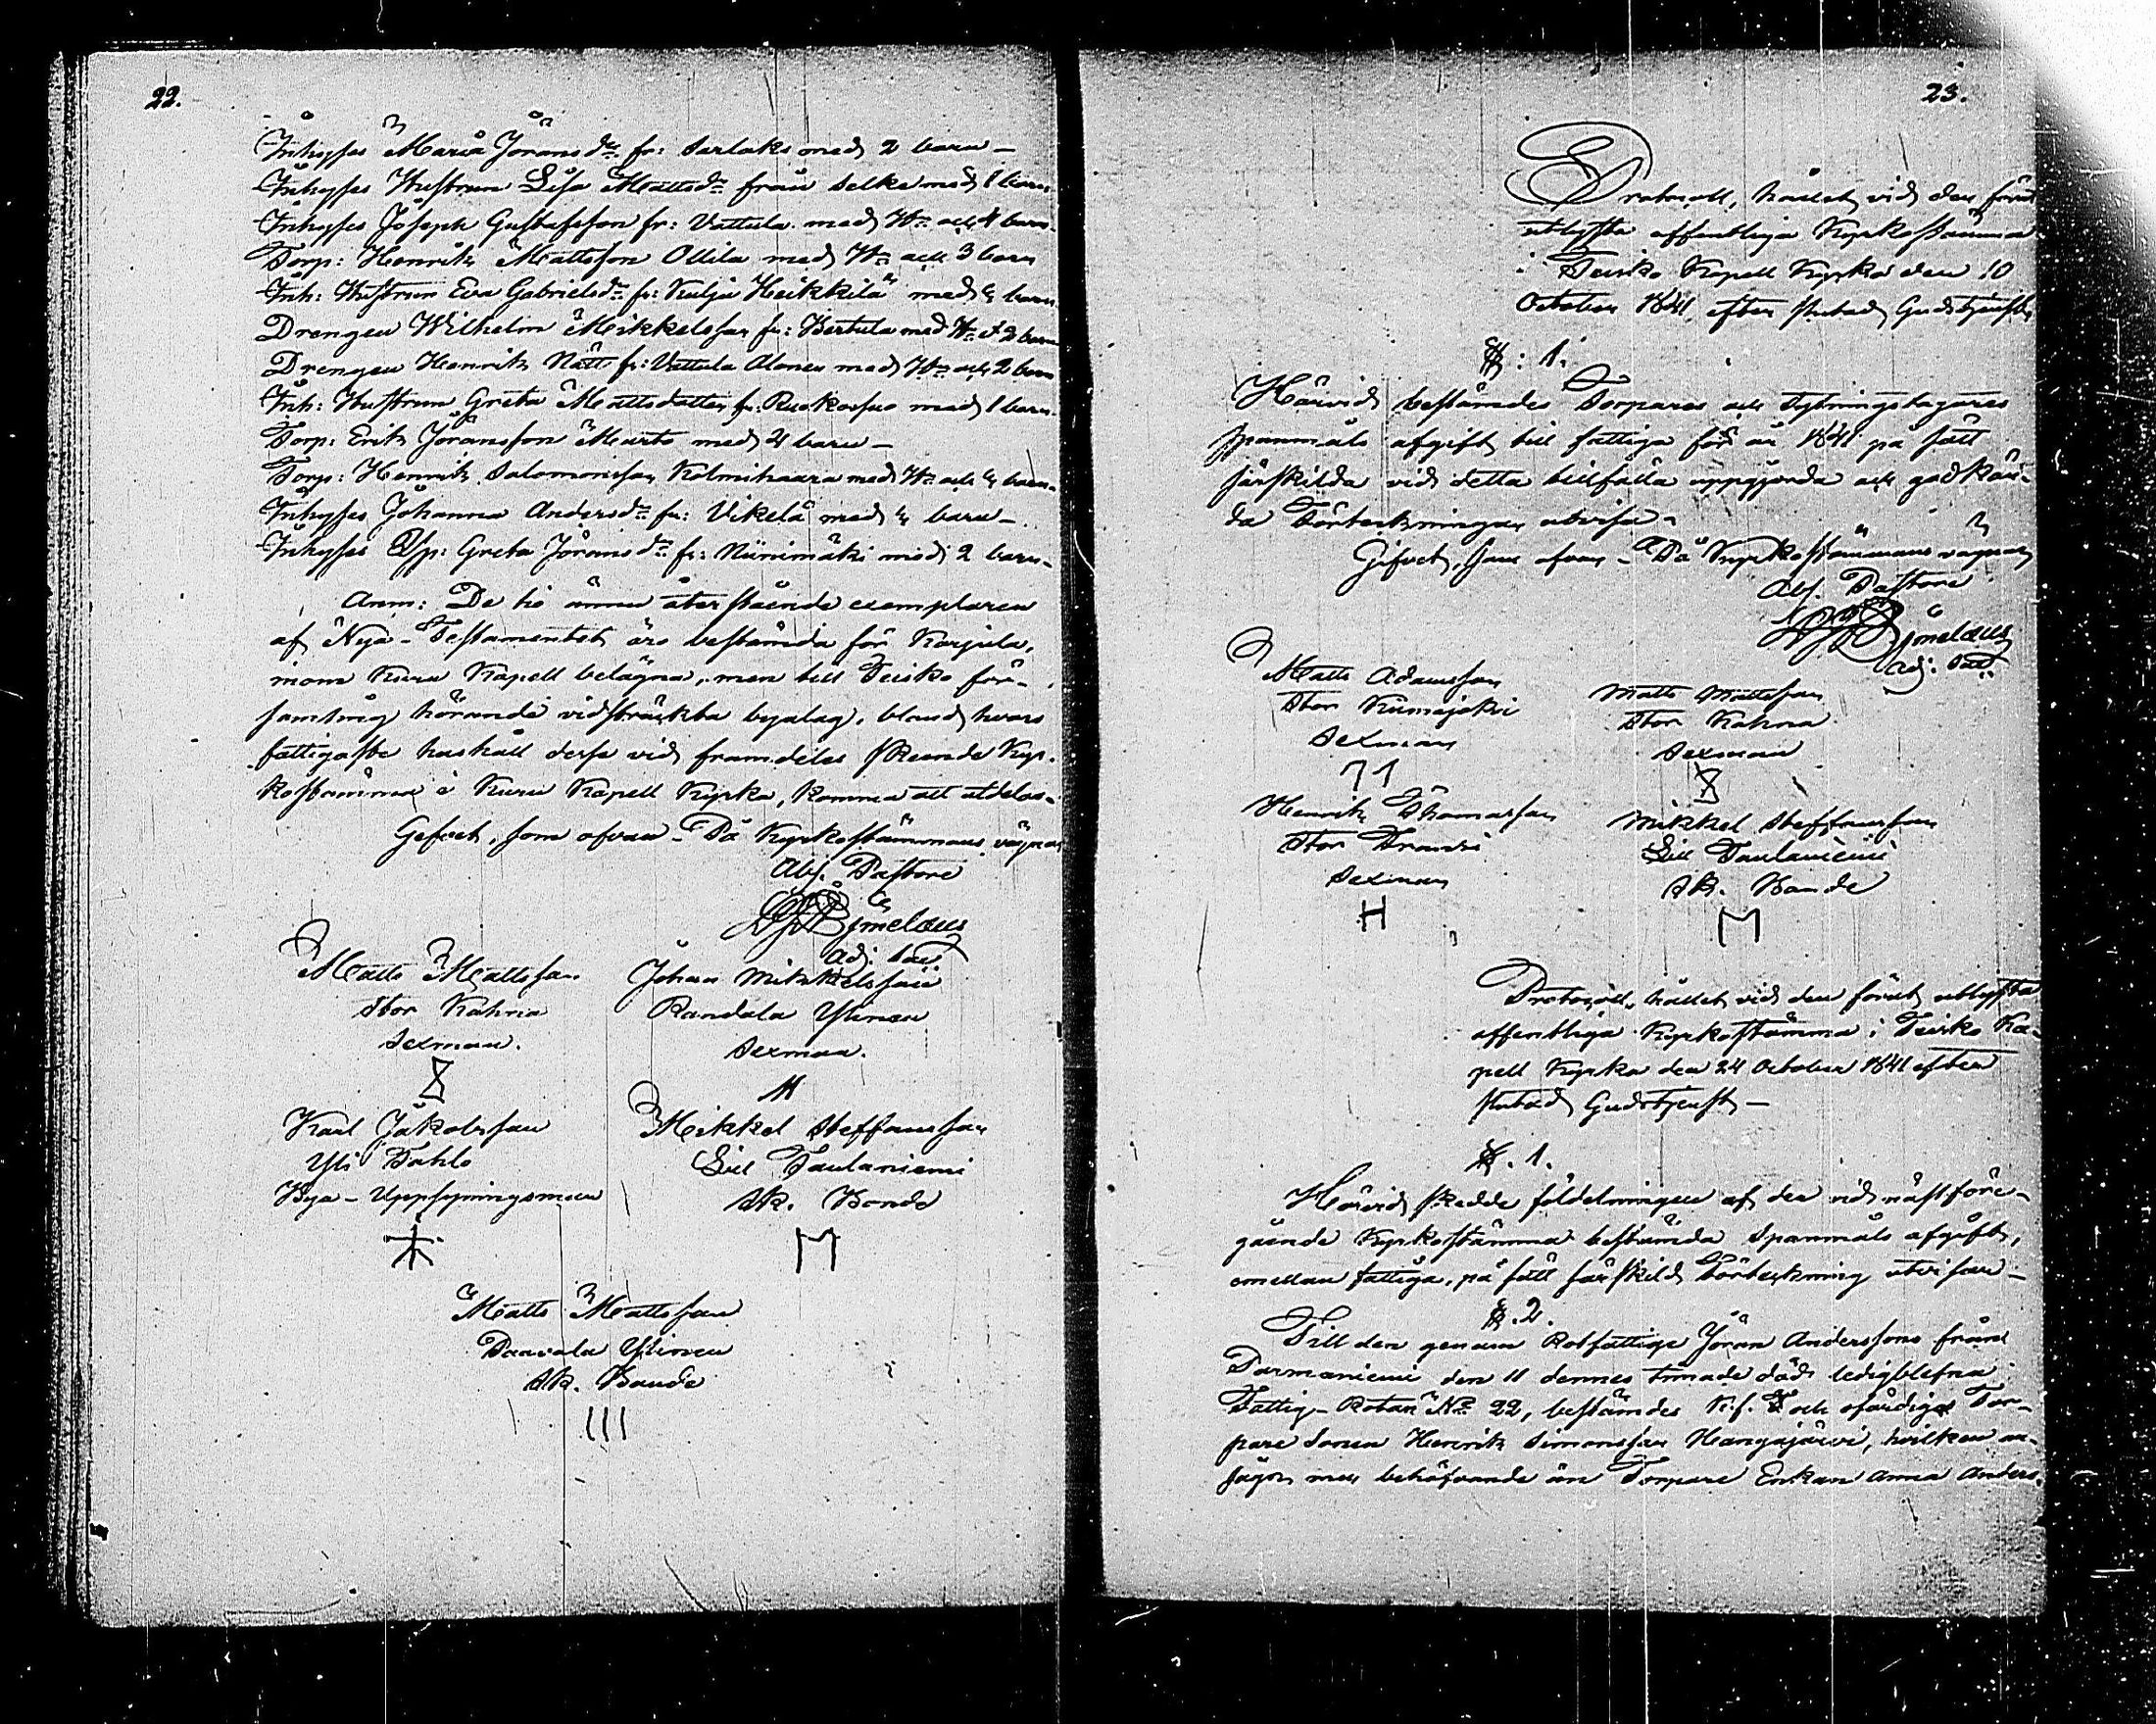 22.
Inhyses Maria Jöransdr fr: Sarlaks med 2 barn –
Inhyses Hustrun Lisa Mattsdr från Selke med 1 barn
Inhyses Joseph Gustafsson fr: Vattula med Hu och 4 barn
Torp: Henrik Mattsson Ollila med Hu och 3 barn
Inh: Hustrun Eva Gabrielsdr fr: Kulju Heikkilä med 4 barn
Drengen Wilhelm Mikkelsson fr: Kertula med Hu o 2 barn
Drengen Henrik Mattss fr: Vattula Alanen med Hu och 2 barn
Inh: Hustrun Greta Mattsdotter fr: Ruokosuo med 1 barn
Torp: Erik Jöransson Murto med 4 barn –
Torp: Henrik Salomonsson Kolmihaara med Hu och 4 barn
Inhyses Johanna Andersdr fr: Vikelä med 4 barn –
Inhyses Greta Jöransdr fr: Niinimäki med 2 barn –
Anm: De tio ännu återstående exemplaren
af Nya-Testamentet äro bestämda för Karjula,
inom Kuru Kapell belägna, men till Teisko för-
samling hörande vidsträckta byalag, bland hvars
fattigaste hushåll desse vid framdeles skeende Kyr-
kostämma i Kuru Kapell Kyrka, komma att utdelas –
Gifvet, som ofvan – På Kyrkostämmans vägnar
Abs. Pastore
Gjmelæus
Adj. Sac
Matts Mattsson
Stor Kahna
Sexman.
Johan Mikkelsson
Randala Ylinen
Sexman.
M
Karl Jakobsson
Yli Pohlo
Bya-Uppsyningsman
Mikkel Steffansson
Lill Paulaniemi
Sk. Bonde
M
Matts Mattsson
Paavola Ylinen
Sk. Bonde
III
23.
Protocoll, hållet vid den förut
utlysta offentliga Kyrkostämma
i Teisko Kapell Kyrka den 10
October 1841 efter slutad Gudstjenst
§: 1.
Härvid bestämdes Torpares och Sytningstagares
spanmåls afgift till fattiga för år 1841 på sätt
särskilda vid detta tillfälle uppgjorda och godkän-
da Förteckningar utvisa –
Gifvet, som ofvan – På Kyrkostämmans vägnar
Abs. Pastore
Gjmelæus
Adj. Sac
Matts Adamsson
Stor Kumajoki
Sexman
Matts Mattsson
Stor Kahna
Sexman
Henrik Thomasson
Stor
Sexman
H
Mikkel Steffansson
Lill Paulaniemi
Sk. Bonde
M
Protocoll, hållet vid den förut utlysta
offentliga Kyrkostämma i Teisko Ka-
pell Kyrka den 24 October 1841 efter
slutad Gudstjenst –
§. 1.
Härvid skedde fördelningen af den vid nästföre-
gående Kyrkostämma bestämda Spanmåls afgift,
emellan fattiga, på sätt särskild Förteckning utvisar –
§. 2.
Till den genom Rotfattige Jöran Anderssons från
Parmaniemi den 11 dennes timade död ledigblefna
Fattig-Rotan No 22, bestämdes och ofärdige Tor-
pare Sonen Henrik Simonsson Hangasjärvi, hvilken an-
sågs mer behöfvande än Torpare Enkan Anna Anders-